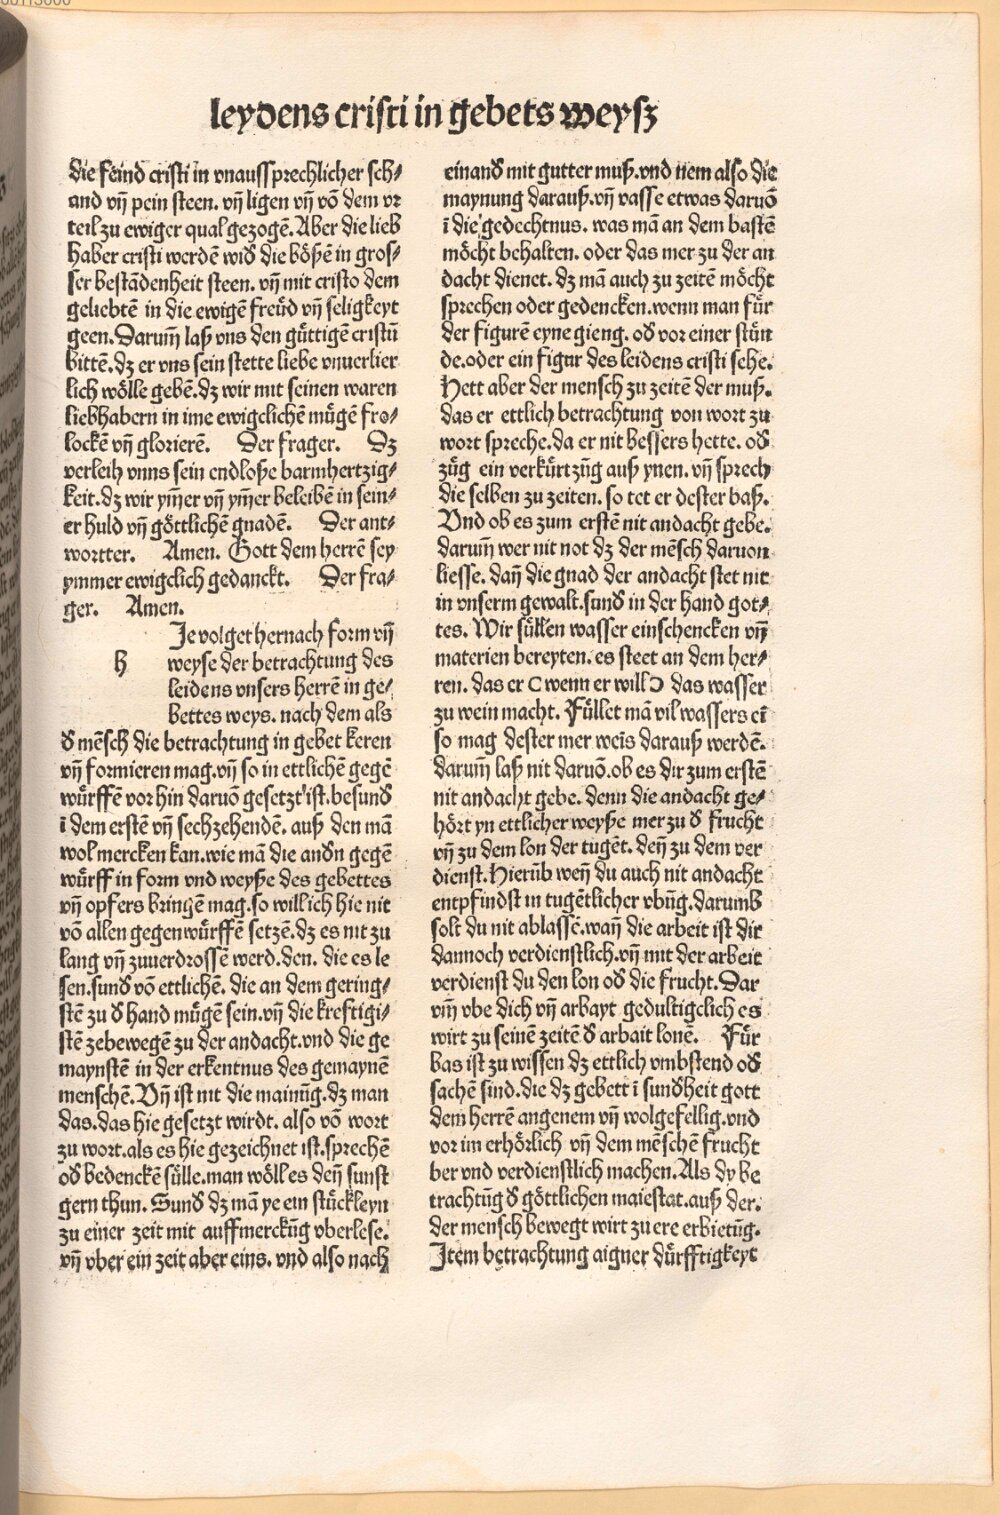 leydens cristi in gebets weysz
die feind cristi in vnaussprechlicher sch⸗
and vñ pein steen. vñ ligen vñ võ dem vr
teil zu ewiger qual gezogẽ. Aber die lieb
haber cristi werdẽ wid᷑ die bößẽ in gros⸗
ser bestãdenheit steen. vñ mit cristo dem
geliebtẽ in die ewigẽ freüd vñ seligkeyt
geen. Darum̃ laß vns den güttigẽ cristũ
bittẽ. dz er vns sein stette liebe vnuerlier
lich wölle gebẽ. dz wir mit seinen waren
liebhabern in ime ewigclichẽ mügẽ fro⸗
lockẽ vñ glorierẽ. Der frager. Dz
verleih vnns sein endloße barmhertzig⸗
keit. dz wir ym̃er vñ ym̃er beleibẽ in sein⸗
er huld vñ göttlichẽ gnadẽ. Der ant⸗
wortter. Amen. Gott dem herrẽ sey
ymmer ewigclich gedanckt. Der fra⸗
ger. Amen.
Je volget hernach form vñ
h weyse der betrachtung des
leidens vnsers herrẽ in ge⸗
bettes weys. nach dem als
d᷑ mẽsch die betrachtung in gebet keren
vñ formieren mag. vñ so in ettlichẽ gegẽ
würffẽ vor hin daruõ gesetzt ist. besund᷑
ĩ dem erstẽ vñ sechzehendẽ. auß den mã
wol mercken kan. wie mã die and᷑n gegẽ
würff in form vnd weyße des gebettes
vñ opfers bringẽ mag. so will ich hie nit
võ allen gegenwürffẽ setzẽ. dz es nit zu
lang vñ zuuerdrossẽ werd. den. die es le
sen. sund᷑ võ ettlichẽ. die an dem gering⸗
stẽ zu d᷑ hand mügẽ sein. vñ die kreftigi⸗
stẽ zebewegẽ zu der andacht. vnd die ge
maynstẽ in der erkentnus des gemaynẽ
menschẽ. Vñ ist nit die mainũg. dz man
das. das hie gesetzt wirdt. also võ wort
zu wort. als es hie gezeichnet ist. sprechẽ
od᷑ bedenckẽ sülle. man wöll es deñ sunst
gern thun. Sund᷑ dz mã ye ein stückleyn
zu einer zeit mit auffmerckũg vberlese.
vñ vber ein zeit aber eins. vnd also nach
einand᷑ mit gutter muß. vnd nem also die
maynung darauß. vñ vasse etwas daruõ
ĩ die gedechtnus. was mã an dem bastẽ
möcht behalten. oder das mer zu der an
dacht dienet. dz mã auch zu zeitẽ möcht
sprechen oder gedencken. wenn man für
der figurẽ eyne gieng. od᷑ vor einer stün
de. oder ein figur des leidens cristi sehe.
Hett aber der mensch zu zeitẽ der muß.
das er ettlich betrachtung von wort zu
wort spreche. da er nit bessers hette. od᷑
züg ein verkürtzũg auß ynen. vñ sprech
die selben zu zeiten. so tet er dester baß.
Vnd ob es zum erstẽ nit andacht gebe.
darum̃ wer nit not dz der mẽsch daruon
liesse. dañ die gnad der andacht stet nit
in vnserm gewalt. sund᷑ in der hand got⸗
tes. Wir süllen wasser einschencken vñ
materien bereyten. es steet an dem her⸗
ren. das er ( wenn er will ) das wasser
zu wein macht. Füllet mã vil wassers eĩ
so mag dester mer weĩs darauß werdẽ.
darum̃ laß nit daruõ. ob es dir zum erstẽ
nit andacht gebe. denn die andacht ge⸗
hört yn ettlicher weyße mer zu d᷑ frucht
vñ zu dem lon der tugẽt. deñ zu dem ver
dienst. Hierũb weñ du auch nit andacht
entpfindst in tugẽtlicher vbũg. darumb
solt du nit ablassẽ. wañ die arbeit ist dir
dannoch verdienstlich. vñ mit der arbeit
verdienst du den lon od᷑ die frucht. Dar
vm̃ vbe dich vñ arbayt gedultigclich es
wirt zu seinẽ zeitẽ d᷑ arbait lonẽ. Für
bas ist zu wissen dz ettlich vmbstend od᷑
sachẽ sind. die dz gebett ĩ sund᷑heit gott
dem herrẽ angenem vñ wolgefellig. vnd
vor im erhörlich vñ dem mẽschẽ frucht
ber vnd verdienstlich machen. Als dy be
trachtũg d᷑ göttlichen maiestat. auß der.
der mensch bewegt wirt zu ere erbietũg.
Item betrachtung aigner dürfftigkeyt